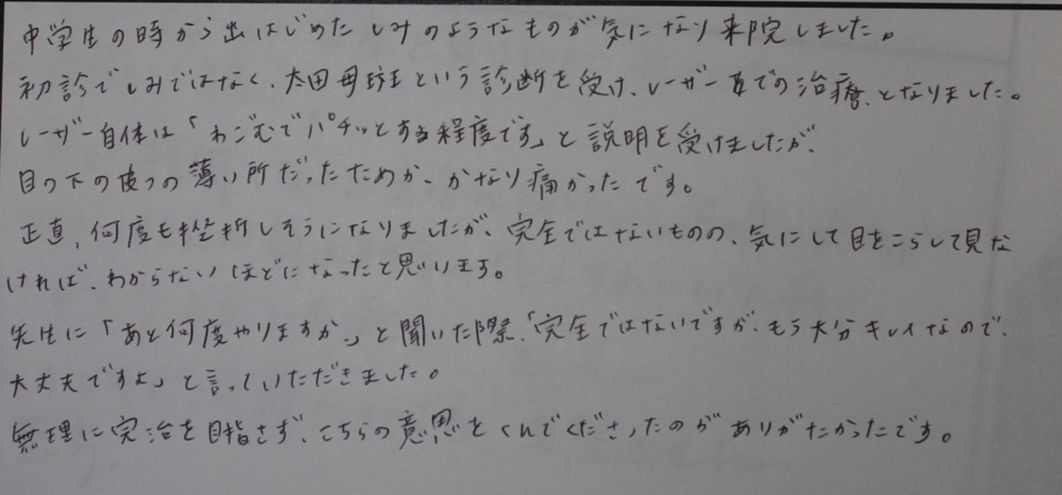 中学生の時から出はじめたしみのようなものが気になり来院しました。
初診でしみではなく、太田母斑という診断を受け、レーザーまでの治療、となりました。
レーザー自体は「わごむでパチッとする程度です」と説明を受けましたが、
目の下の皮フの薄い所だったためか、かなり痛かったです。
正直、何度も挫折しそうになりましたが、完全ではないものの、気にして目をこらして見な
ければ、わからないほどになったと思います。
先生に「あと何度やりますか。」と聞いた際、「完全ではないですが、もう大分キレイなので、
大丈夫ですよ」と言っていただきました。
無理に完治を目指さず、こちらの意思をくんでくださったのがありがたかったです。